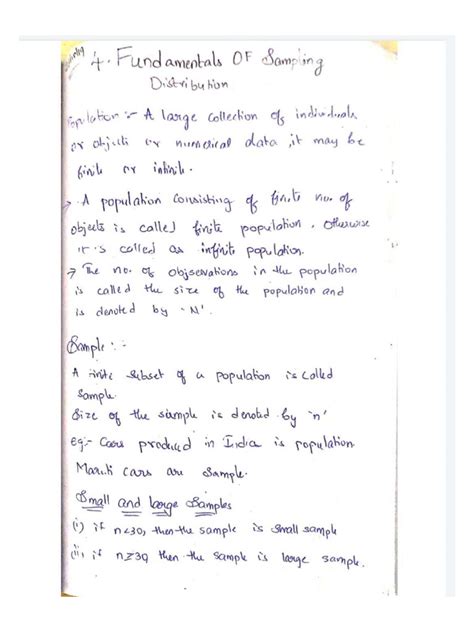 4. Fundamentals OF Sampling
Distribution
Population :- A large collection of individuals
or objects or numerical data, it may be
finite or infinite.
→ A population consisting of finite no. of
objects is called finite population. Otherwise
it is called as infinite population.
→ The no. of observations in the population
is called the size of the population and
is denoted by 'N'.
Sample :-
A finite subset of a population is called
Sample.
Size of the sample is denoted by 'n'
eg:- Cars produced in India is population
Maruti cars are Sample.
Small and large Samples
(i) if n<30, then the sample is small sample
(ii) if n≥30 then the sample is large sample.